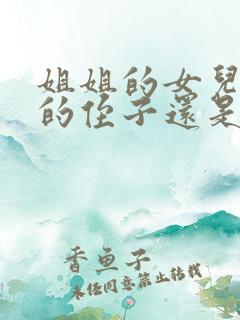 姐姐的女兒
的侄子還是
香魚子
未经同意禁止转载